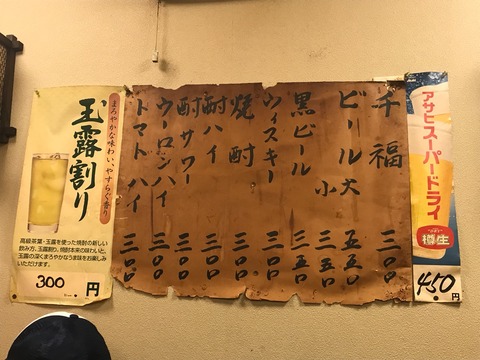 アサヒスーパードライ
樽生
450円
千福 三〇〇
ビール大 五五〇
小 三五〇
黒ビール 三五〇
ウィスキー 三〇〇
焼酎 三〇〇
酎ハイ 三〇〇
酎サワー 三〇〇
ウーロンハイ 三〇〇
トマトハイ 三〇〇
まろやかな味わい、やすらぐ香り
玉露割り
高級茶葉・玉露を使った焼酎の新しい
飲み方、玉露割り。焼酎本来の味わいと、
玉露の深くまろやかなうま味をお楽しみ
いただけます。
300円